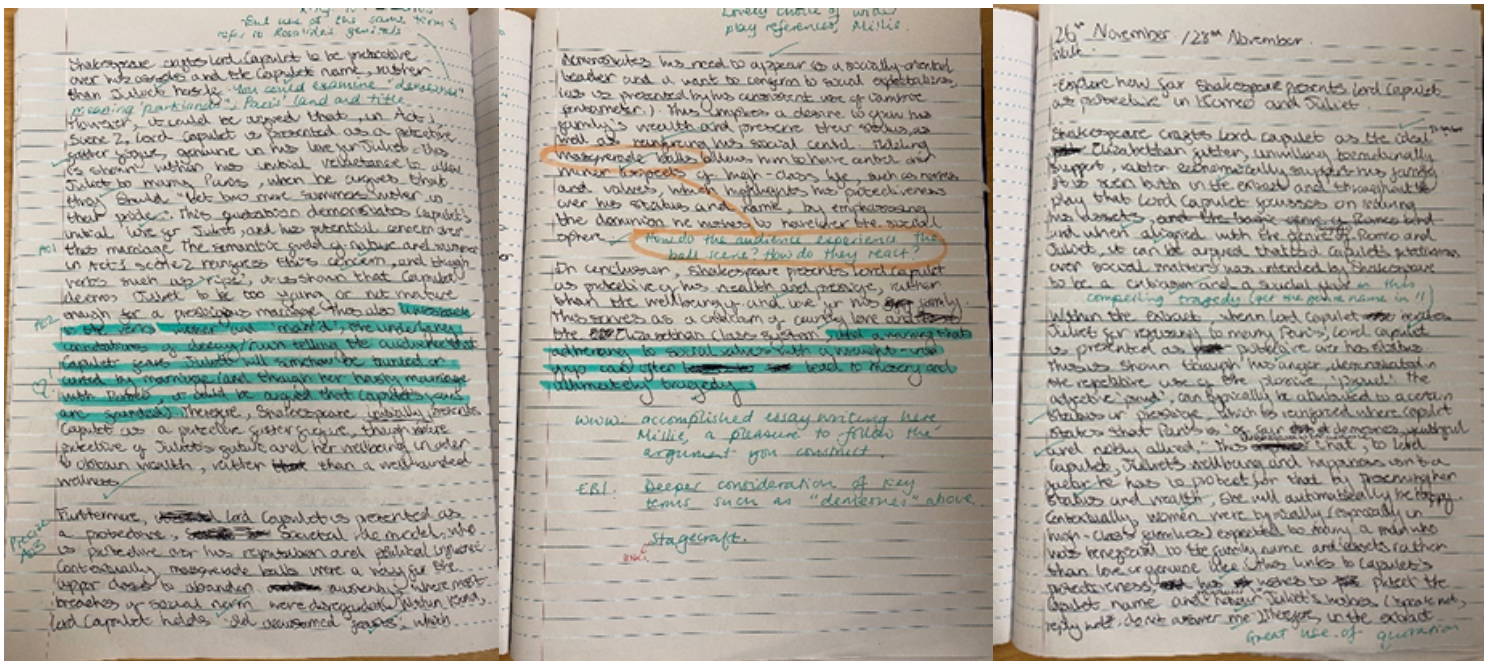 -But use of the same term to
refer to Rosaline's genitals
Shakespeare crafts Lord Capulet to be protective
over his assets and the Capulet name, rather
than Juliet herself. You could examine "demesnes"
meaning 'parklands', Paris' land and title.
However, it could be argued that, in Act 1,
Scene 2, Lord Capulet is presented as a protective
father figure, genuine in his love for Juliet. This
is shown within his initial reluctance to allow
Juliet to marry Paris, when he argues that
they should "let two more summers wither in
that pride". This quotation demonstrates Capulet's
initial love for Juliet, and his potential concern over
this marriage. The semantic field of nature and summer
in Act 1 scene 2 reinforces this concern, and though
verbs such as 'ripe', it is shown that Capulet
deems Juliet to be too young or not mature
enough for a prestigious marriage. This also
to the verbs 'wither' and 'marr'd', the underlying
connotations of decay/ruin telling the audience that
Capulet fears Juliet will somehow be
by marriage (and though her hasty marriage
with Romeo, it could be argued that Capulet's fears
are grounded). Therefore, Shakespeare initially presents
Capulet as a protective father figure, though more
protective of Juliet's future and her wellbeing in order
to obtain wealth, rather than a well-rounded
wellness.
Furthermore, Lord Capulet is presented as
a protective, societal role model, who
is protective over his reputation and political
Contextually, masquerade balls were a way for the
upper classes to abandon where most
breaches of social norm were disregarded. Within
Lord Capulet holds 'old accustomed feasts', which
AO1
AO2
Precise
AO3
Lovely choice of wider
play references, Millie.
demonstrates his need to appear as a socially-oriented
leader and a want to conform to social expectations,
(as is presented by his consistent use of iambic
pentameter). This implies a desire to gain his
family's wealth and preserve their status, as
well as reinforcing his social control. Holding
masquerade balls allows him to have control over
minor aspects of high-class life, such as norms
and values, which highlights his protectiveness
over his status and name, by emphasising
the dominion he wishes to have over the social
sphere.
How do the audience experience the
ball scene? How do they react?
In conclusion, Shakespeare presents Lord Capulet
as protective of his wealth and prestige, rather
than the wellbeing of and love for his family.
This serves as a criticism of courtly love and
the Elizabethan class system, and a warning that
adhering to social values with a
grip can often lead to misery and
ultimately tragedy.
WWW: accomplished essay writing here
Millie, a pleasure to follow the
argument you construct.
EBI: Deeper consideration of key
terms such as "demesnes" above
Stagecraft.
26th November / 28th November.
-Explore how far Shakespeare presents Lord Capulet
as protective in Romeo and Juliet.
Shakespeare crafts Lord Capulet as the ideal
Elizabethan father, unwilling to emotionally
support, rather economically support his family.
It is seen both in the extract and throughout the
play that Lord Capulet focusses on
his assets, and
and when aligned with the genre of Romeo and
Juliet, it can be argued that Lord Capulet's
over social matters was intended by Shakespeare
to be a criticism and a crucial part in this
compelling tragedy (get the genre name in!!)
Within the extract, when Lord Capulet
Juliet for refusing to marry Paris, Lord Capulet
is presented as protective over his status.
This is shown though his anger, demonstrated in
the repetitive use of the 'proud'. The
adjective 'proud', can typically be attributed to a certain
status or prestige, which is reinforced where Capulet
states that Paris is 'of fair demesnes, youthful
and nobly allied'. This that, to Lord
Capulet, Juliet's wellbeing and happiness isn't a
factor he has to protect for that by promising her
status and wealth, she will automatically be happy.
Contextually, women were typically (especially in
high-class families) expected to marry a man who
was beneficial to the family name and assets rather
than love or genuine like (this links to Capulet's
protectiveness, his wishes to protect the
Capulet name and Juliet's wishes ('speak not,
reply not, do not answer me'). Therefore, in the extract
Great use of quotation